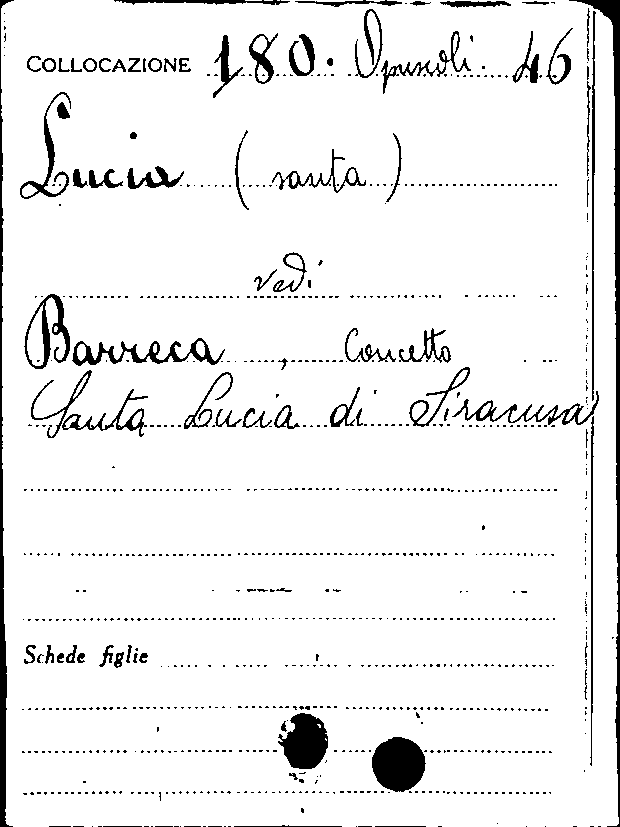 COLLOCAZIONE 180. Opuscoli. 46
Lucia (santa)
vedi
Barreca, Concetto
Santa Lucia di Siracusa
Schede figlie